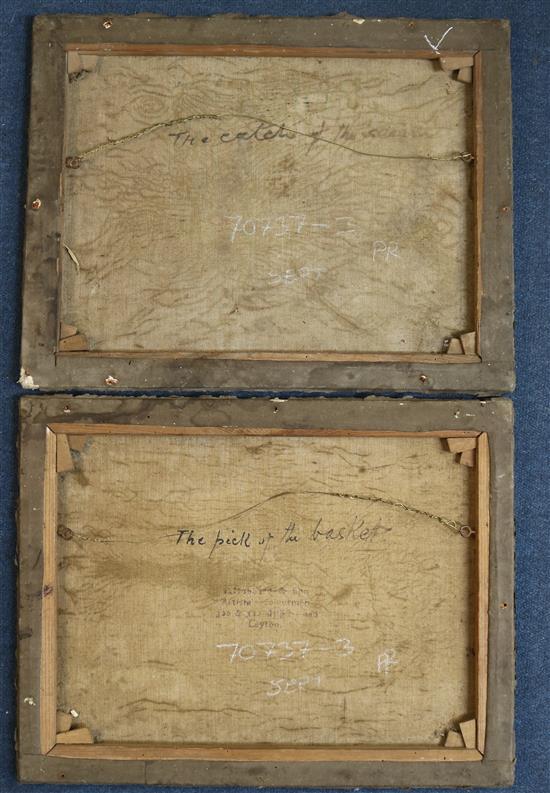 The catch of the season
70737-3
PR
SEPT
The pick of the basket
& Son
Artists
Leyton.
70737-3
PR
SEPT